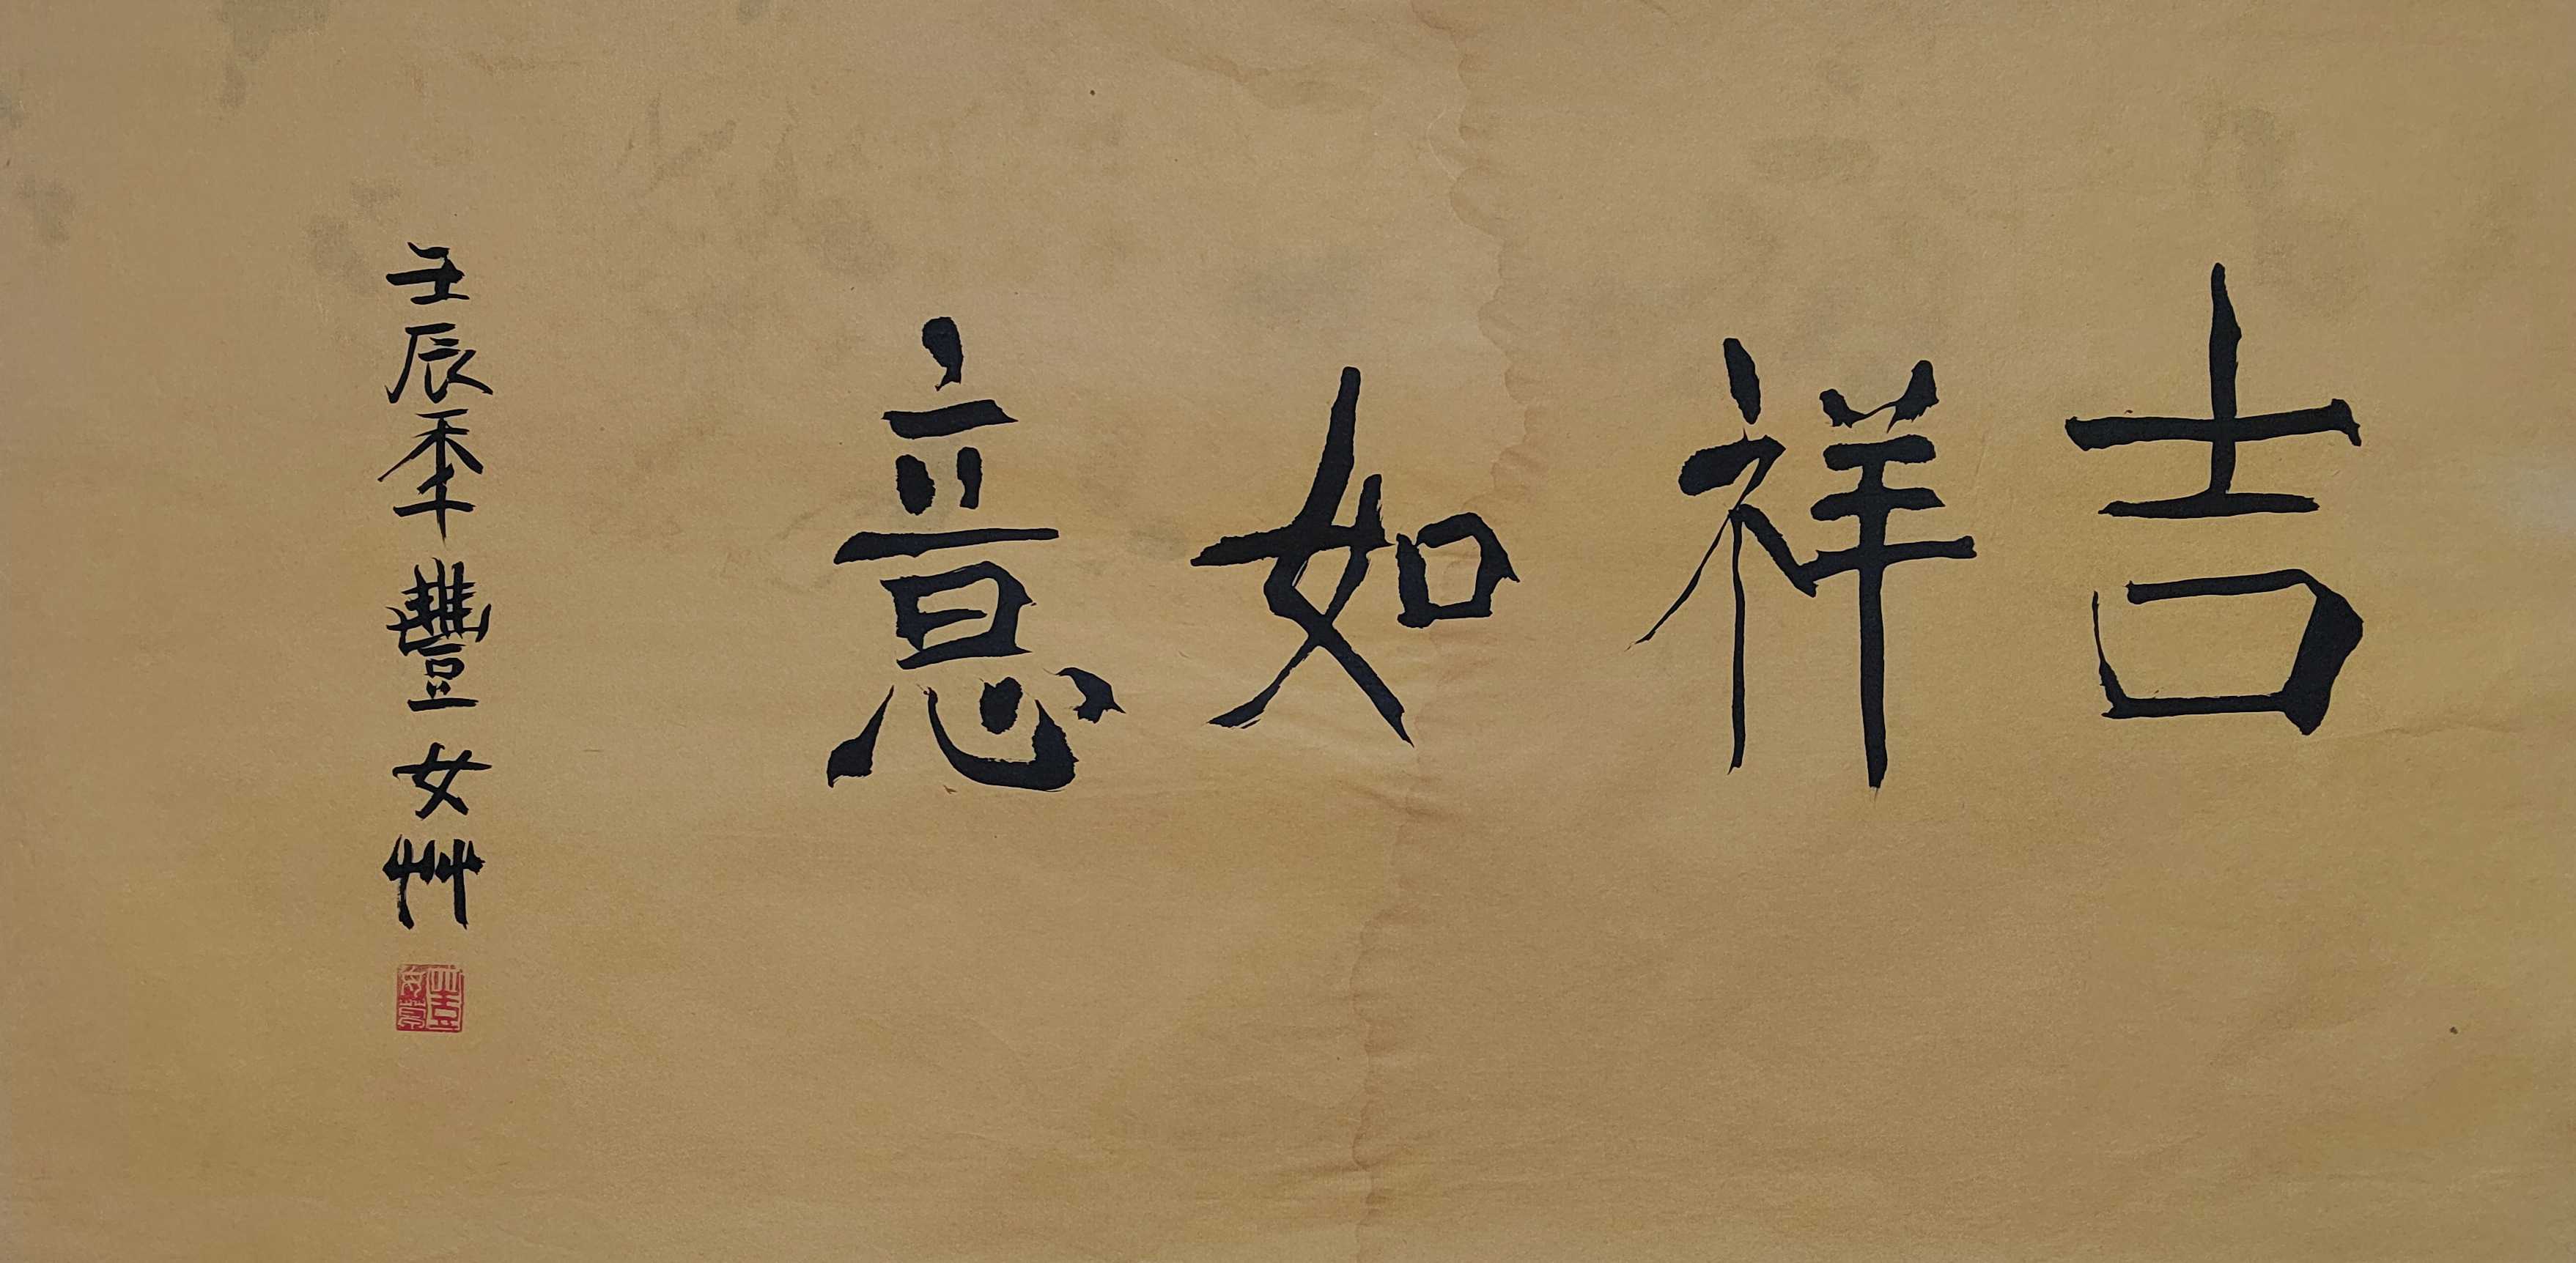 吉祥如意
壬辰年豐女艸